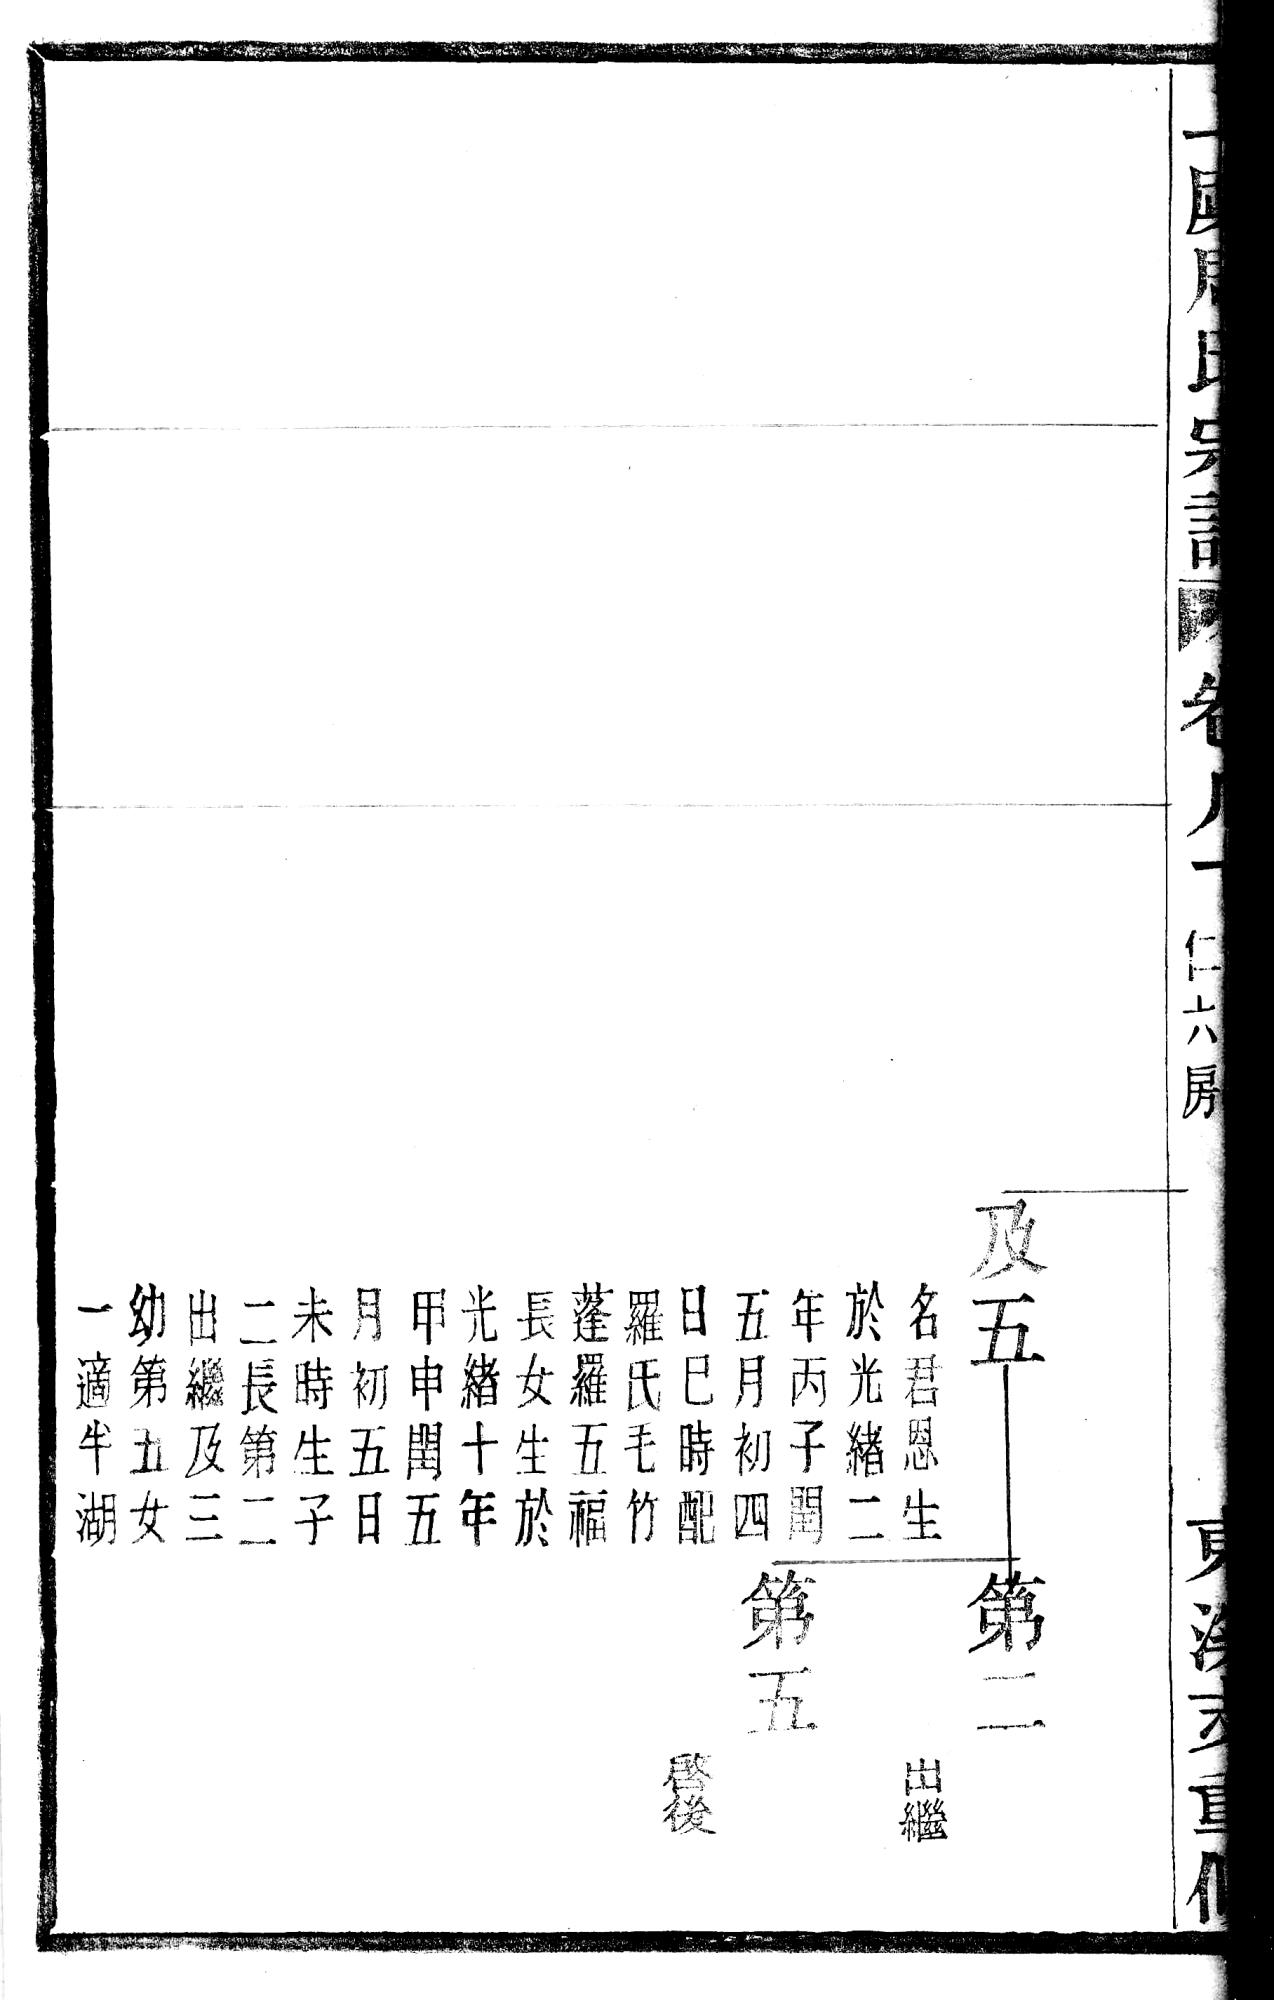 周氏宗譜
卷八
仁六房
重修
及五
名君恩生
於光緒二
年丙子閏
五月初四
日巳時配
羅氏毛竹
蓬羅五福
長女生於
光緒十年
甲申閏五
月初五日
未時生子
二長第二
出繼及三
幼第五女
一適半湖
第二
出繼
第五
啓後